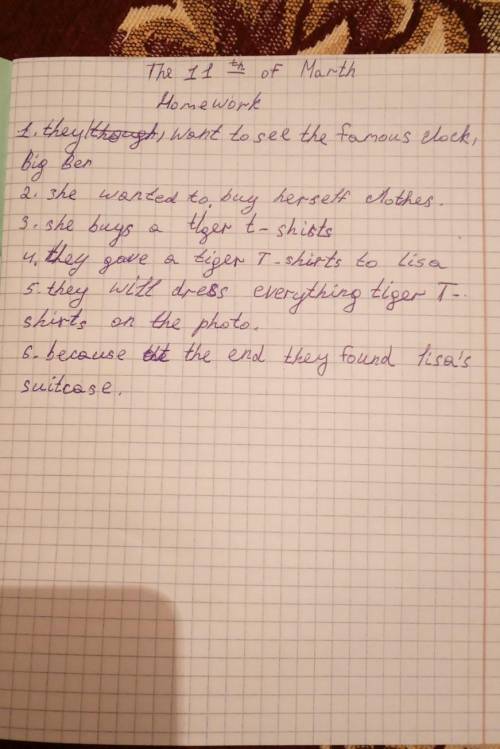 The 11 th of Marth
Homework
1. they (though) want to see the famous clock,
Big Ben
2. she wanted to buy herself clothes.
3. she buys a tiger t-shirts
4. they gave a tiger T-shirts to lisa
5. they will dress everything tiger T-
shirts on the photo.
6. because the end they found lisa's
suitcase.